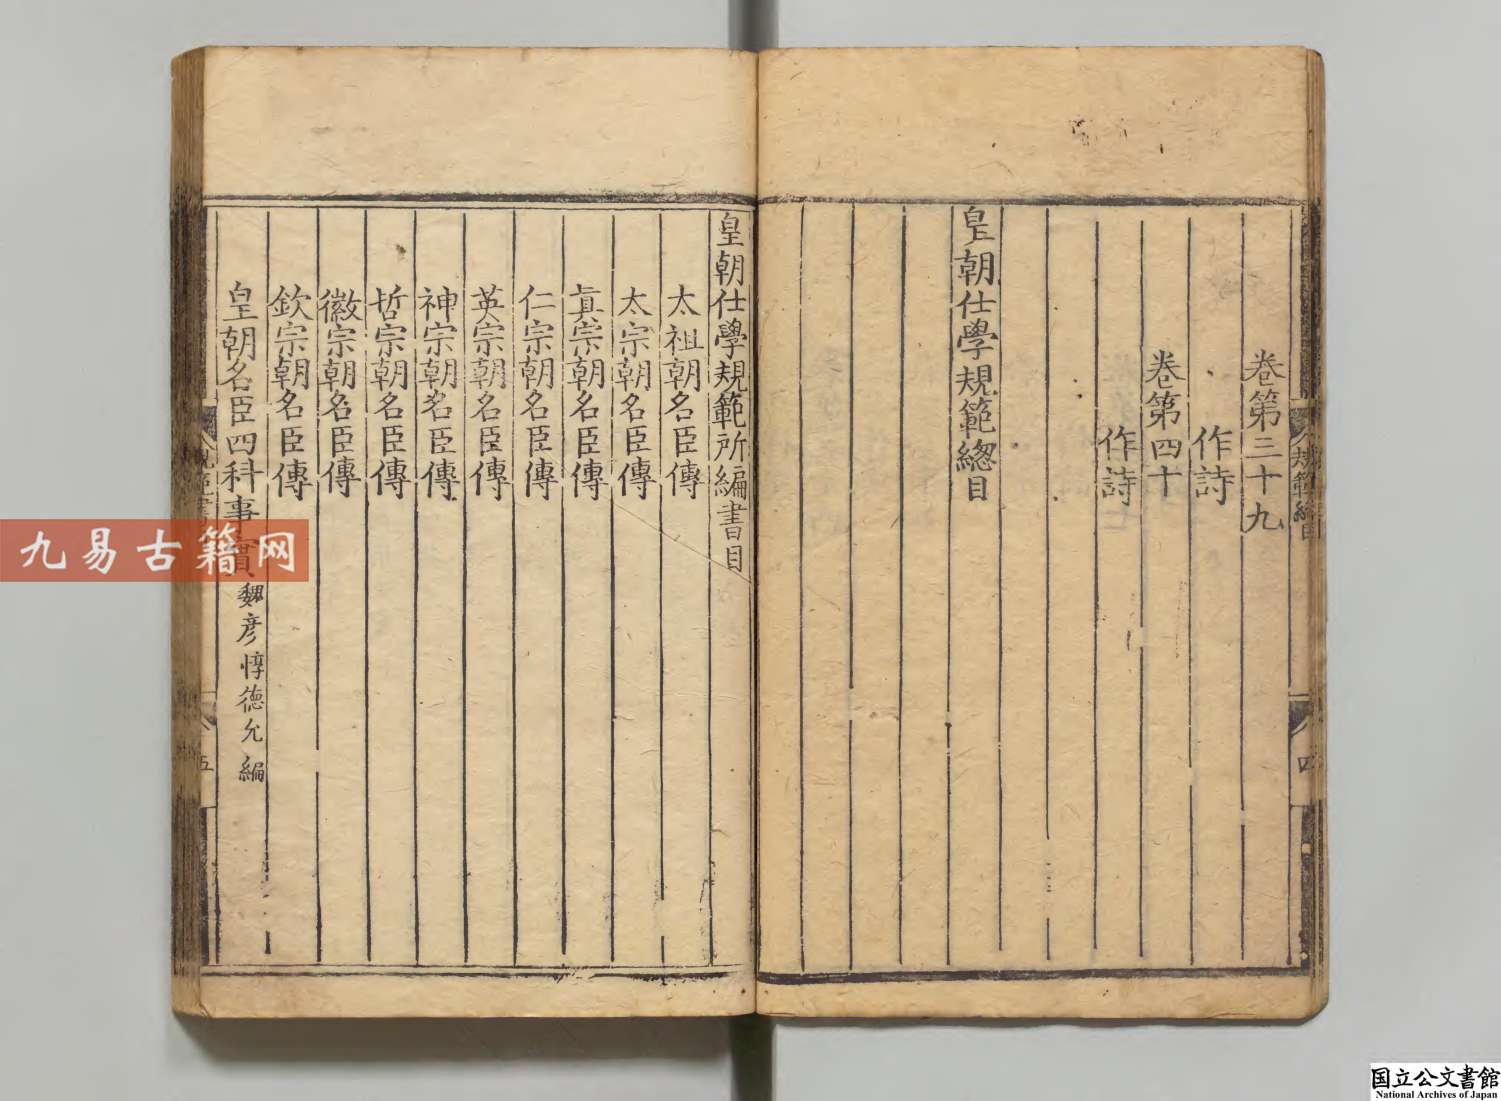 卷第三十九
作詩
卷第四十
作詩
皇朝仕學規範總目
規範總目
四
皇朝仕學規範所編書目
太祖朝名臣傳
太宗朝名臣傳
眞宗朝名臣傳
仁宗朝名臣傳
英宗朝名臣傳
神宗朝名臣傳
哲宗朝名臣傳
徽宗朝名臣傳
欽宗朝名臣傳
皇朝名臣四科事實魏彦惇德允編
五
九易古籍网
国立公文書館
National Archives of Japan